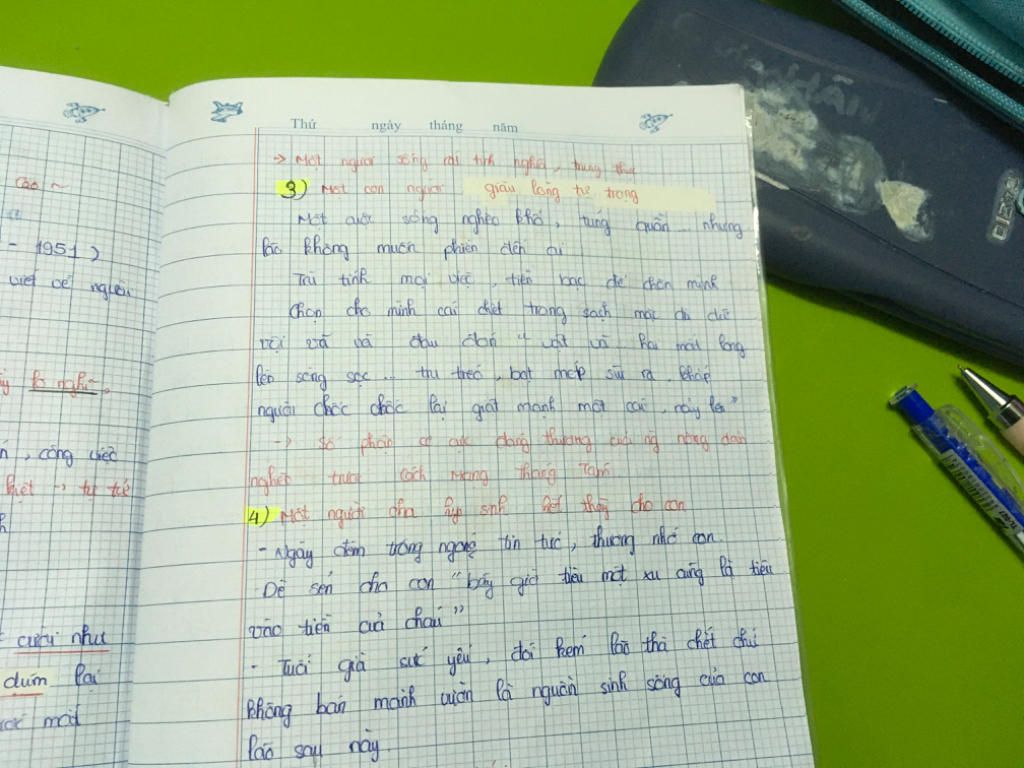 cao ~
- 1951)
viết về người
lão nghĩ,
, công việc
kiệt → tự tử
cười như
dúm lại
mặt
Thứ ngày tháng năm
→ Một người sống rất tình nghĩa, trung thực
3) Một con người giàu lòng tự trọng
Một cuộc sống nghèo khổ, túng quẫn.. nhưng
lão không muốn phiền đến ai
Trù tính mọi việc, tiền bạc để chôn mình
Chọn cho mình cái chết trong sạch mặc dù dữ
dội và đau đớn "vật vã hai mắt long
lên sòng sọc.. tru tréo, bọt mép sùi ra, khắp
người chốc chốc lại giật mạnh một cái, nảy lên"
→ Số phận cơ cực đáng thương của ng nông dân
nghèo trước Cách Mạng Tháng Tám
4) Một người cha hy sinh hết thảy cho con
- Ngày đêm trông ngóng tin tức, thương nhớ con.
Dè sẻn cho con "bây giờ tiêu một xu cũng là tiêu
vào tiền của cháu"
- Tuổi già sức yếu, đói kém lão thà chết chứ
không bán mảnh vườn là nguồn sinh sống của con
lão sau này.